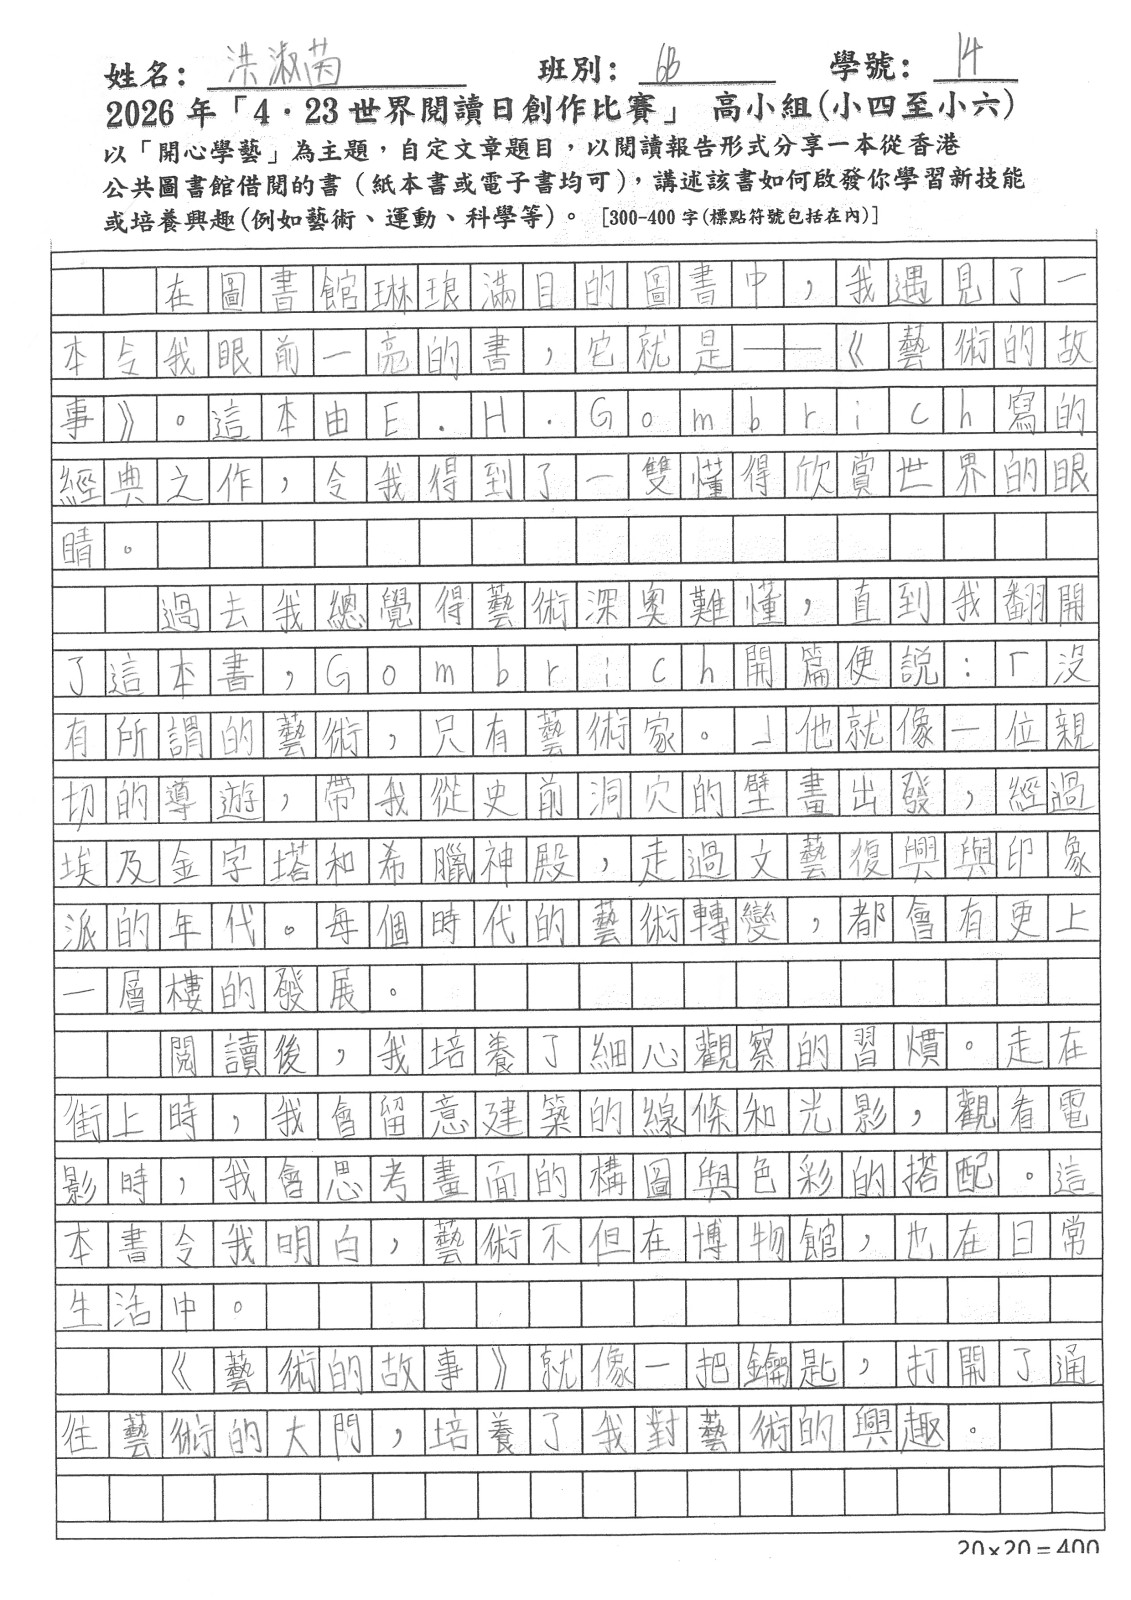 姓名：洪淑茵 班別：6B 學號：14
2026年「4·23世界閱讀日創作比賽」 高小組(小四至小六)
以「開心學藝」為主題，自定文章題目，以閱讀報告形式分享一本從香港
公共圖書館借閱的書（紙本書或電子書均可），講述該書如何啟發你學習新技能
或培養興趣(例如藝術、運動、科學等)。 [300-400字(標點符號包括在內)]
在圖書館琳琅滿目的圖書中，我遇見了一
本令我眼前一亮的書，它就是——《藝術的故
事》。這本由E.H.Gombrich寫的
經典之作，令我得到了一雙懂得欣賞世界的眼
睛。
過去我總覺得藝術深奧難懂，直到我翻開
了這本書，Gombrich開篇便説：「沒
有所謂的藝術，只有藝術家。」他就像一位親
切的導遊，帶我從史前洞穴的壁畫出發，經過
埃及金字塔和希臘神殿，走過文藝復興與印象
派的年代。每個時代的藝術轉變，都會有更上
一層樓的發展。
閱讀後，我培養了細心觀察的習慣。走在
街上時，我會留意建築的線條和光影，觀看電
影時，我會思考畫面的構圖與色彩的搭配。這
本書令我明白，藝術不但在博物館，也在日常
生活中。
《藝術的故事》就像一把鑰匙，打開了通
往藝術的大門，培養了我對藝術的興趣。
20×20=400